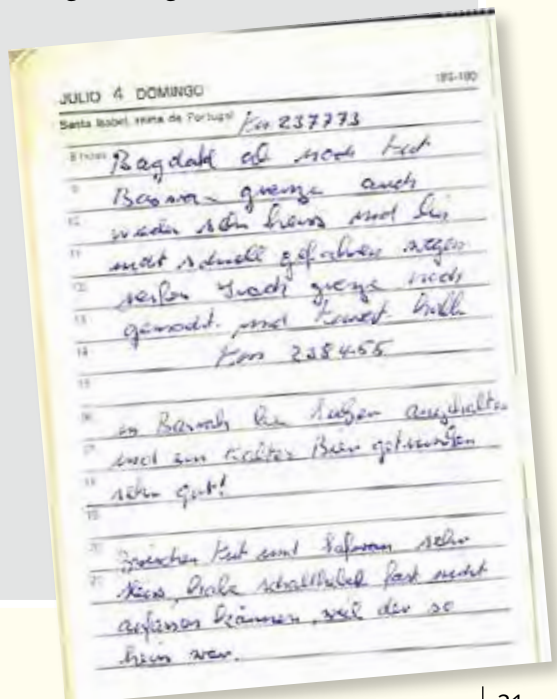 JULIO 4 DOMINGO 185-180
Santa Isabel, reina de Portugal Km 237773
8 horas Bagdad ab nach Kut
9 Basra - grenze auch
10 wieder sehr heiss und bin
11 nicht schnell gefahren wegen
12 reifen Irach grenze noch
13 gemacht und Kuwait
14 Km 238455
15
16 in Basrah bei angehalten
17 und ein kaltes Bier getrunken
18 sehr gut!
19
20 Zwischen Kut und Safwan sehr
21 heiss, habe schalthebel fast nicht
anfassen können, weil der so
heiss war.
21